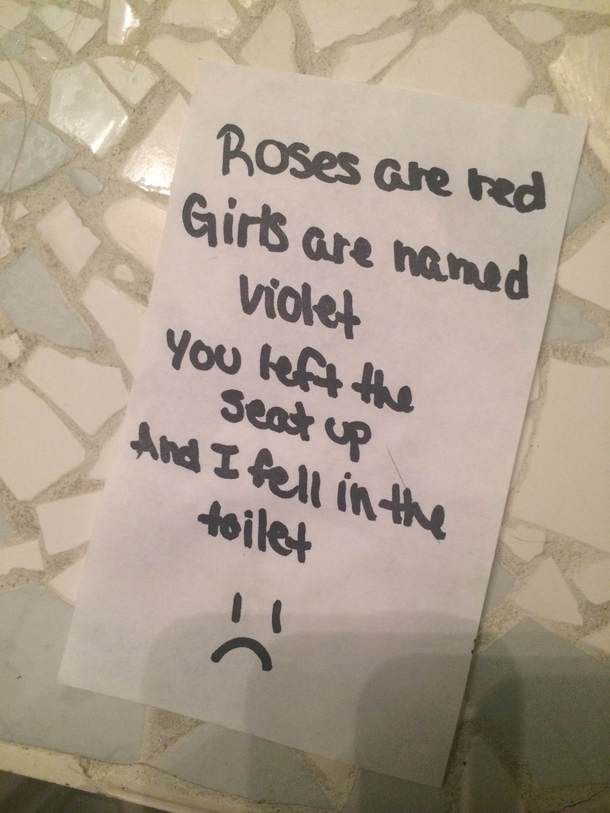 Roses are red
Girls are named
violet
You left the
seat up
And I fell in the
toilet